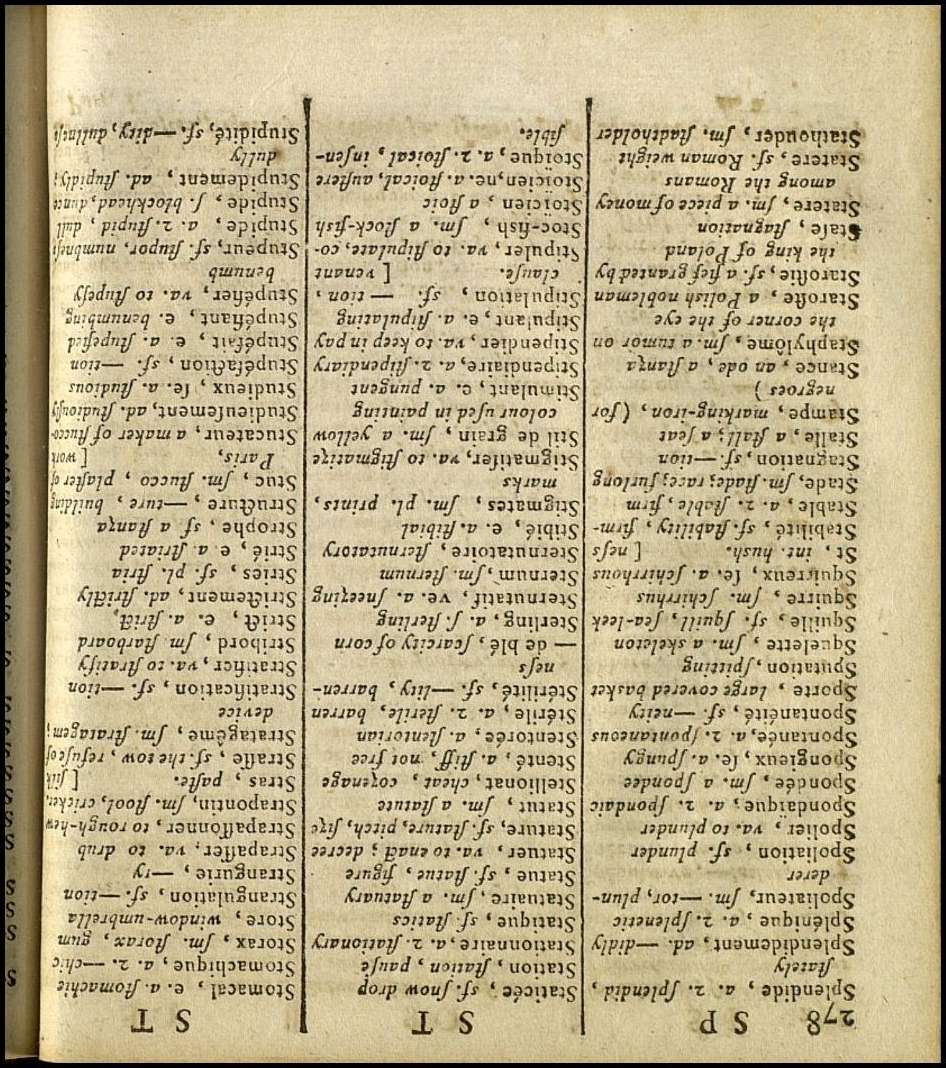 278 S P
Splendide, a. 2. ſplendid,
ſtately
Splendidement, ad. —didly
Splénique, a. 2. ſplenetic
Spoliateur, ſm. —tor, plun-
derer
Spoliation, ſf. plunder
Spolier, va. to plunder
Spondaïque, a. 2. ſpondaic
Spondée, ſm. a ſpondee
Spongieux, ſe. a. ſpungy
Spontanée, a. 2. ſpontaneous
Spontanéité, ſf. —neity
Sporte, large covered basket
Sputation, ſpitting
Squelette, ſm. a skeleton
Squille, ſf. ſquill, ſea-leek
Squirre, ſm. ſchirrhus
Squirreux, ſe. a. ſchirrhous
St, int. hush. [neſs
Stabilité, ſf. ſtability, firm-
Stable, a. 2. ſtable, firm
Stade, ſm. ſtade; race; furlong
Stagnation, ſf. —tion
Stalle, a ſtall; a ſeat
Stampe, marking-iron, (for
negroes)
Stance, an ode, a ſtanza
Staphylôme, ſm. a tumor on
the corner of the eye
Staroſte, a Poliſh nobleman
Staroſtie, ſf. a fief granted by
the king of Poland
Staſe, ſtagnation
Statere, ſm. a piece of money
among the Romans
Statere, ſf. Roman weight
Stathouder, ſm. ſtadtholder
S T
Staticée, ſf. ſnow drop
Station, ſtation, pauſe
Stationnaire, a. 2. ſtationary
Statique, ſf. ſtatics
Statuaire, ſm. a ſtatuary
Statue, ſf. ſtatue, figure
Statuer, va. to enact; decree
Stature, ſf. ſtature, pitch, ſize
Statut, ſm. a ſtatute
Stellionat, cheat, cozenage
Stenté, a. ſtiff, not free
Stentorée, a. ſtentorian
Stérile, a. 2. ſterile, barren
Stérilité, ſf. —lity, barren-
neſs
— de blé, ſcarcity of corn
Sterling, a. ſ. ſterling
Sternutatif, ve. a. ſneezing
Sternum, ſm. ſternum
Sternutatoire, ſternutatory
Stibié, e. a. ſtibial
Stigmates, ſm. pl. prints,
marks
Stigmatiſer, va. to ſtigmatize
Stil de grain, ſm. a yellow
colour uſed in painting
Stimulant, e. a. pungent
Stipendiaire, a. 2. ſtipendiary
Stipendier, va. to keep in pay
Stipulant, e. a. ſtipulating
Stipulation, ſf. —tion,
clauſe. [venant
Stipuler, va. to ſtipulate, co-
Stoc-fish, ſm. a ſtock-fiſh
Stoïcien, a ſtoic
Stoïcien, ne. a. ſtoical, auſtere
Stoïque, a. 2. ſtoical, inſen-
ſible.
S T
Stomacal, e. a. ſtomachic
Stomachique, a. 2. —chic
Storax, ſm. ſtorax, gum
Store, window-umbrella
Strangulation, ſf. —tion
Strangurie, —ry
Strapaſſer, va. to drub
Strapaſſonner, to rough-hew
Strapontin, ſm. ſtool, cricket.
Stras, paſte.
Straſſe, ſf. the tow, refuſe of
Stratagême, ſm. ſtratagem,
device
Stratification, ſf. —tion
Stratifier, va. to ſtratify
Stribord, ſm. ſtarboard
Strict, e. a. ſtrict,
Strictement, ad. ſtrictly
Stries, ſf. pl. ſtria
Strié, e. a. ſtriated
Strophe, ſf a ſtanza
Structure, —ture, building
Stuc, ſm. ſtucco, plaſter of
Paris, [work
Stucateur, a maker of ſtucco-
Studieuſement, ad. ſtudiouſly
Studieux, ſe. a. ſtudious
Stupéfaction, ſf. —tion
Stupéfait, e. a. ſtupefied
Stupéfiant, e. benumbing
Stupéfier, va. to ſtupefy
benumb
Stupeur, ſf. ſtupor, numbneſs
Stupide, a. 2. ſtupid, dull
Stupide, ſ. blockhead, dunce
Stupidement, ad. ſtupidly,
dully
Stupidité, ſf. —dity, dullneſs